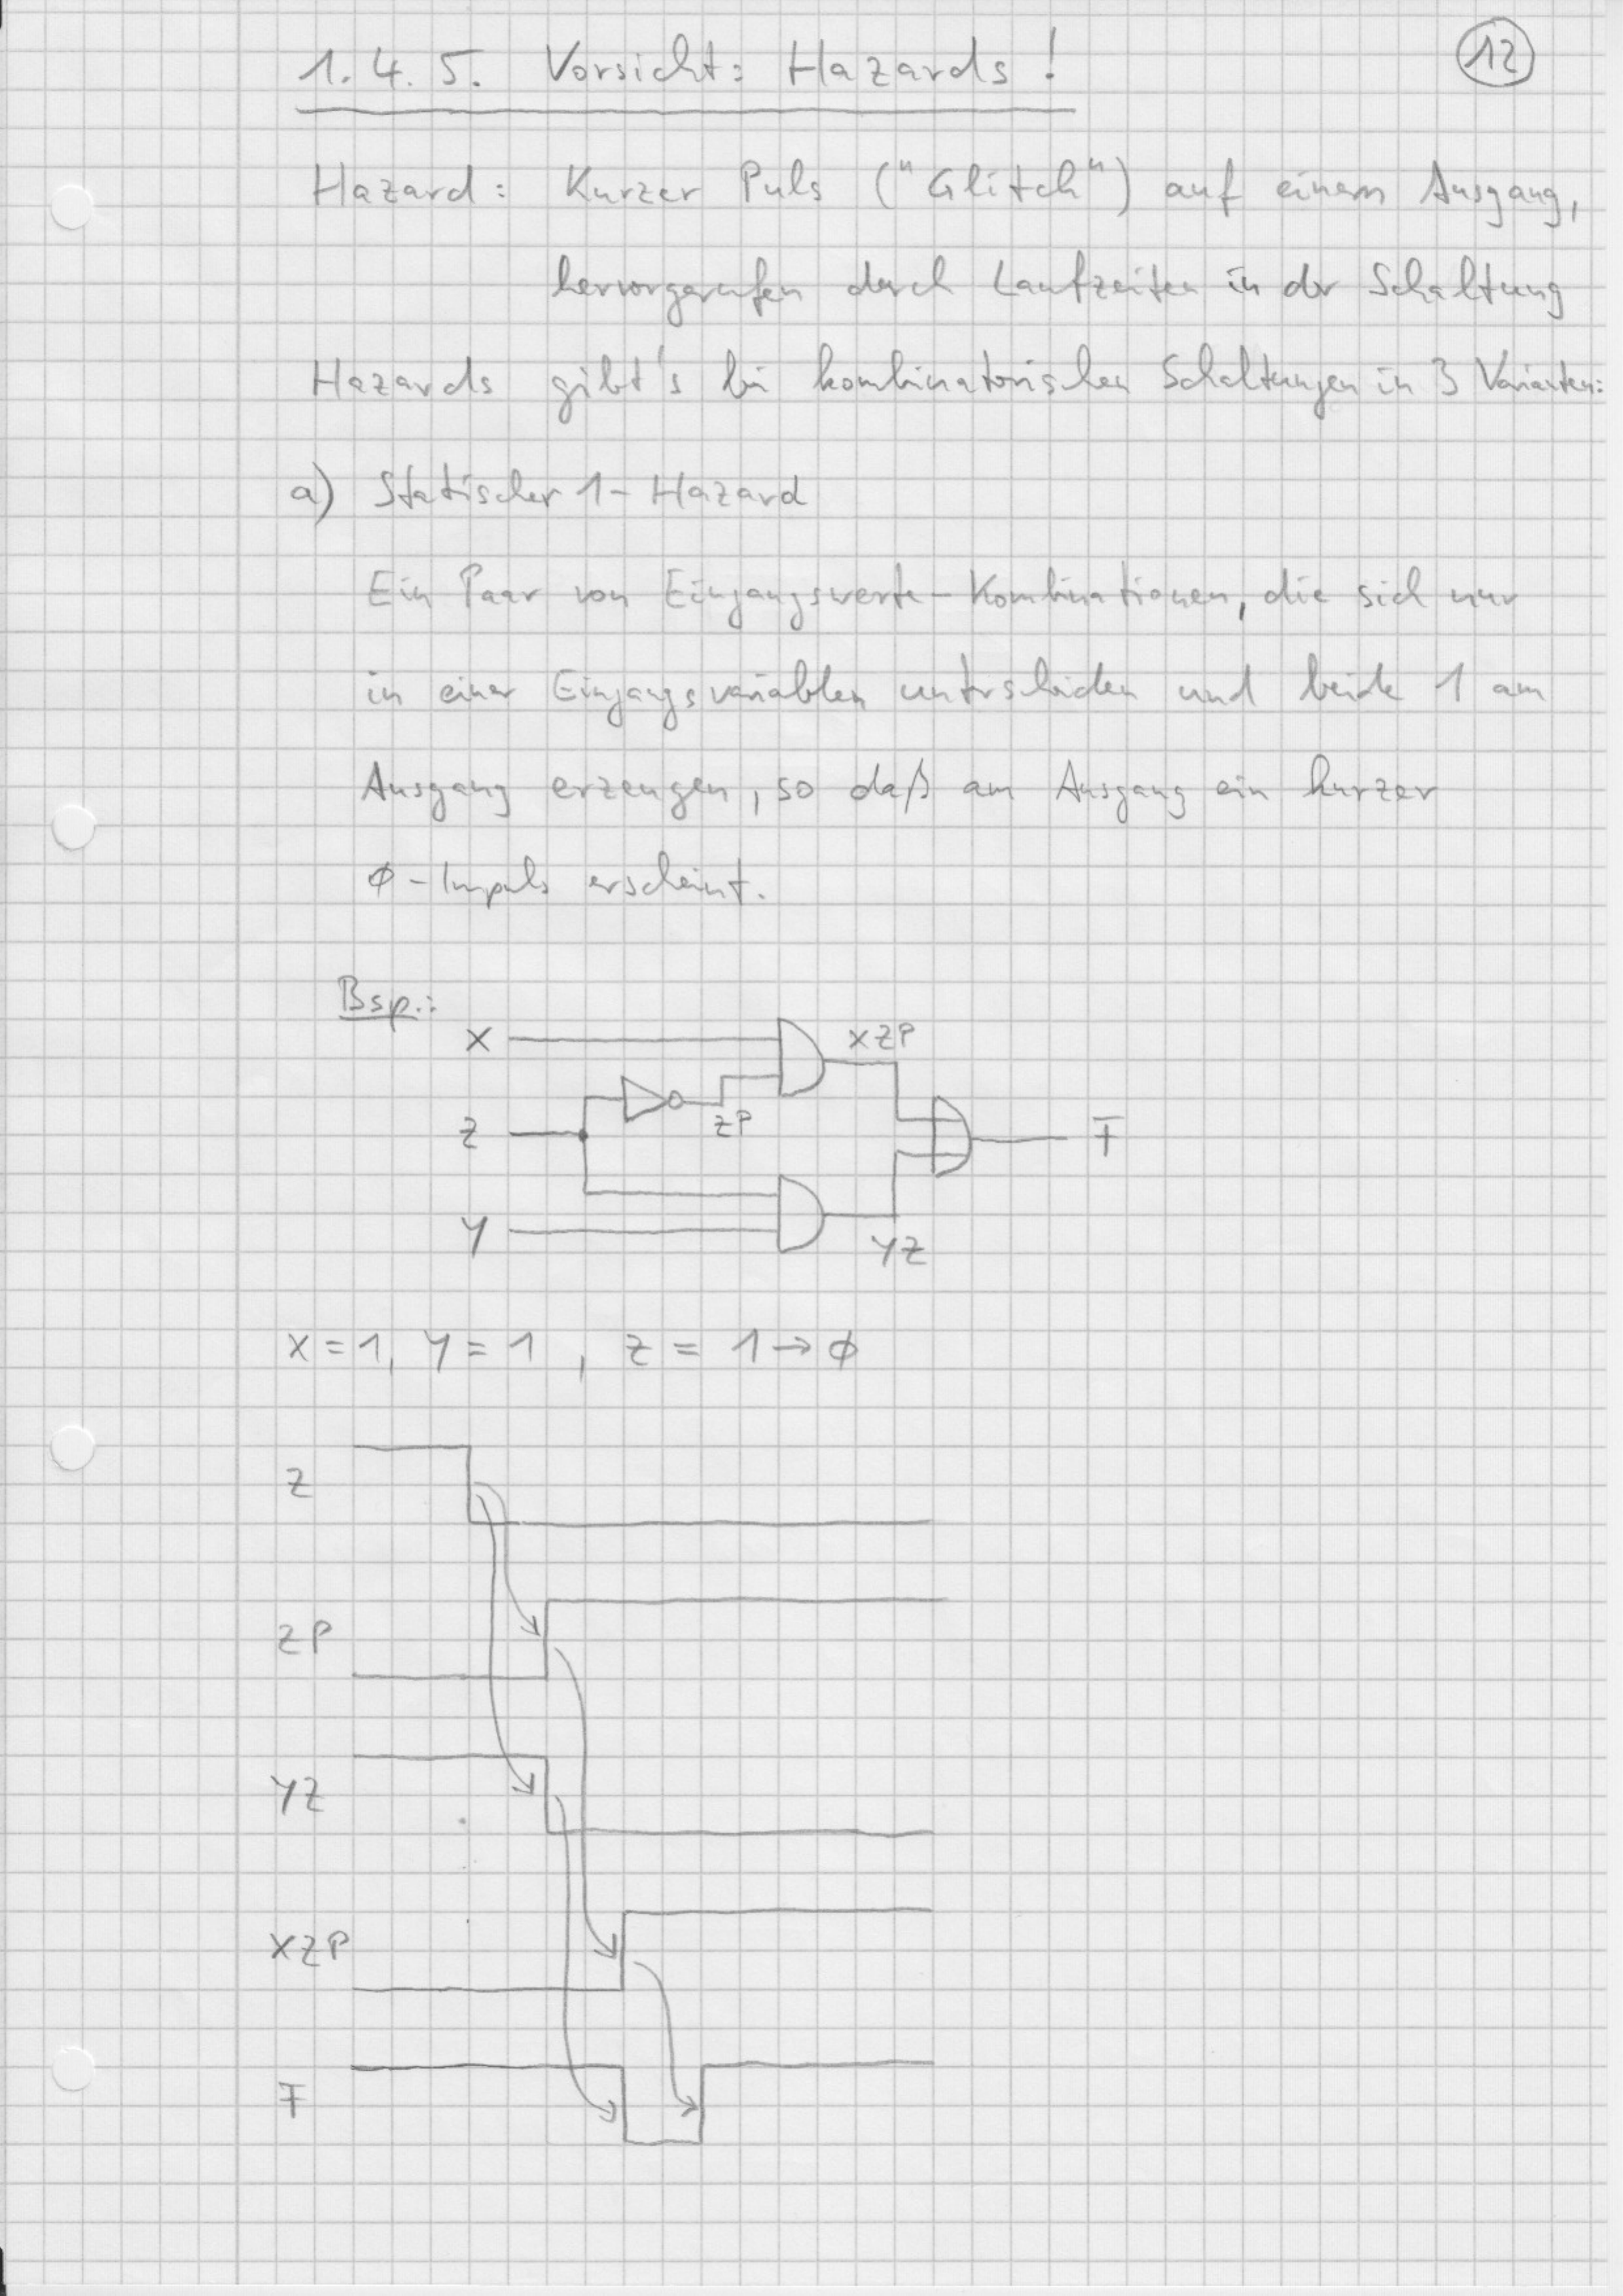 1.4.5. Vorsicht: Hazards!
12
Hazard: Kurzer Puls ("Glitch") auf einem Ausgang,
hervorgerufen durch Laufzeiten in der Schaltung
Hazards gibt's bei kombinatorischen Schaltungen in 3 Varianten:
a) Statischer 1-Hazard
Ein Paar von Eingangswerte-Kombinationen, die sich nur
in einer Eingangsvariablen unterscheiden und beide 1 am
Ausgang erzeugen, so daß am Ausgang ein kurzer
ø-Impuls erscheint.
Bsp.:
X
XZP
ZP
Z
F
Y
YZ
X=1, Y=1, Z = 1→ø
Z
ZP
YZ
XZP
F